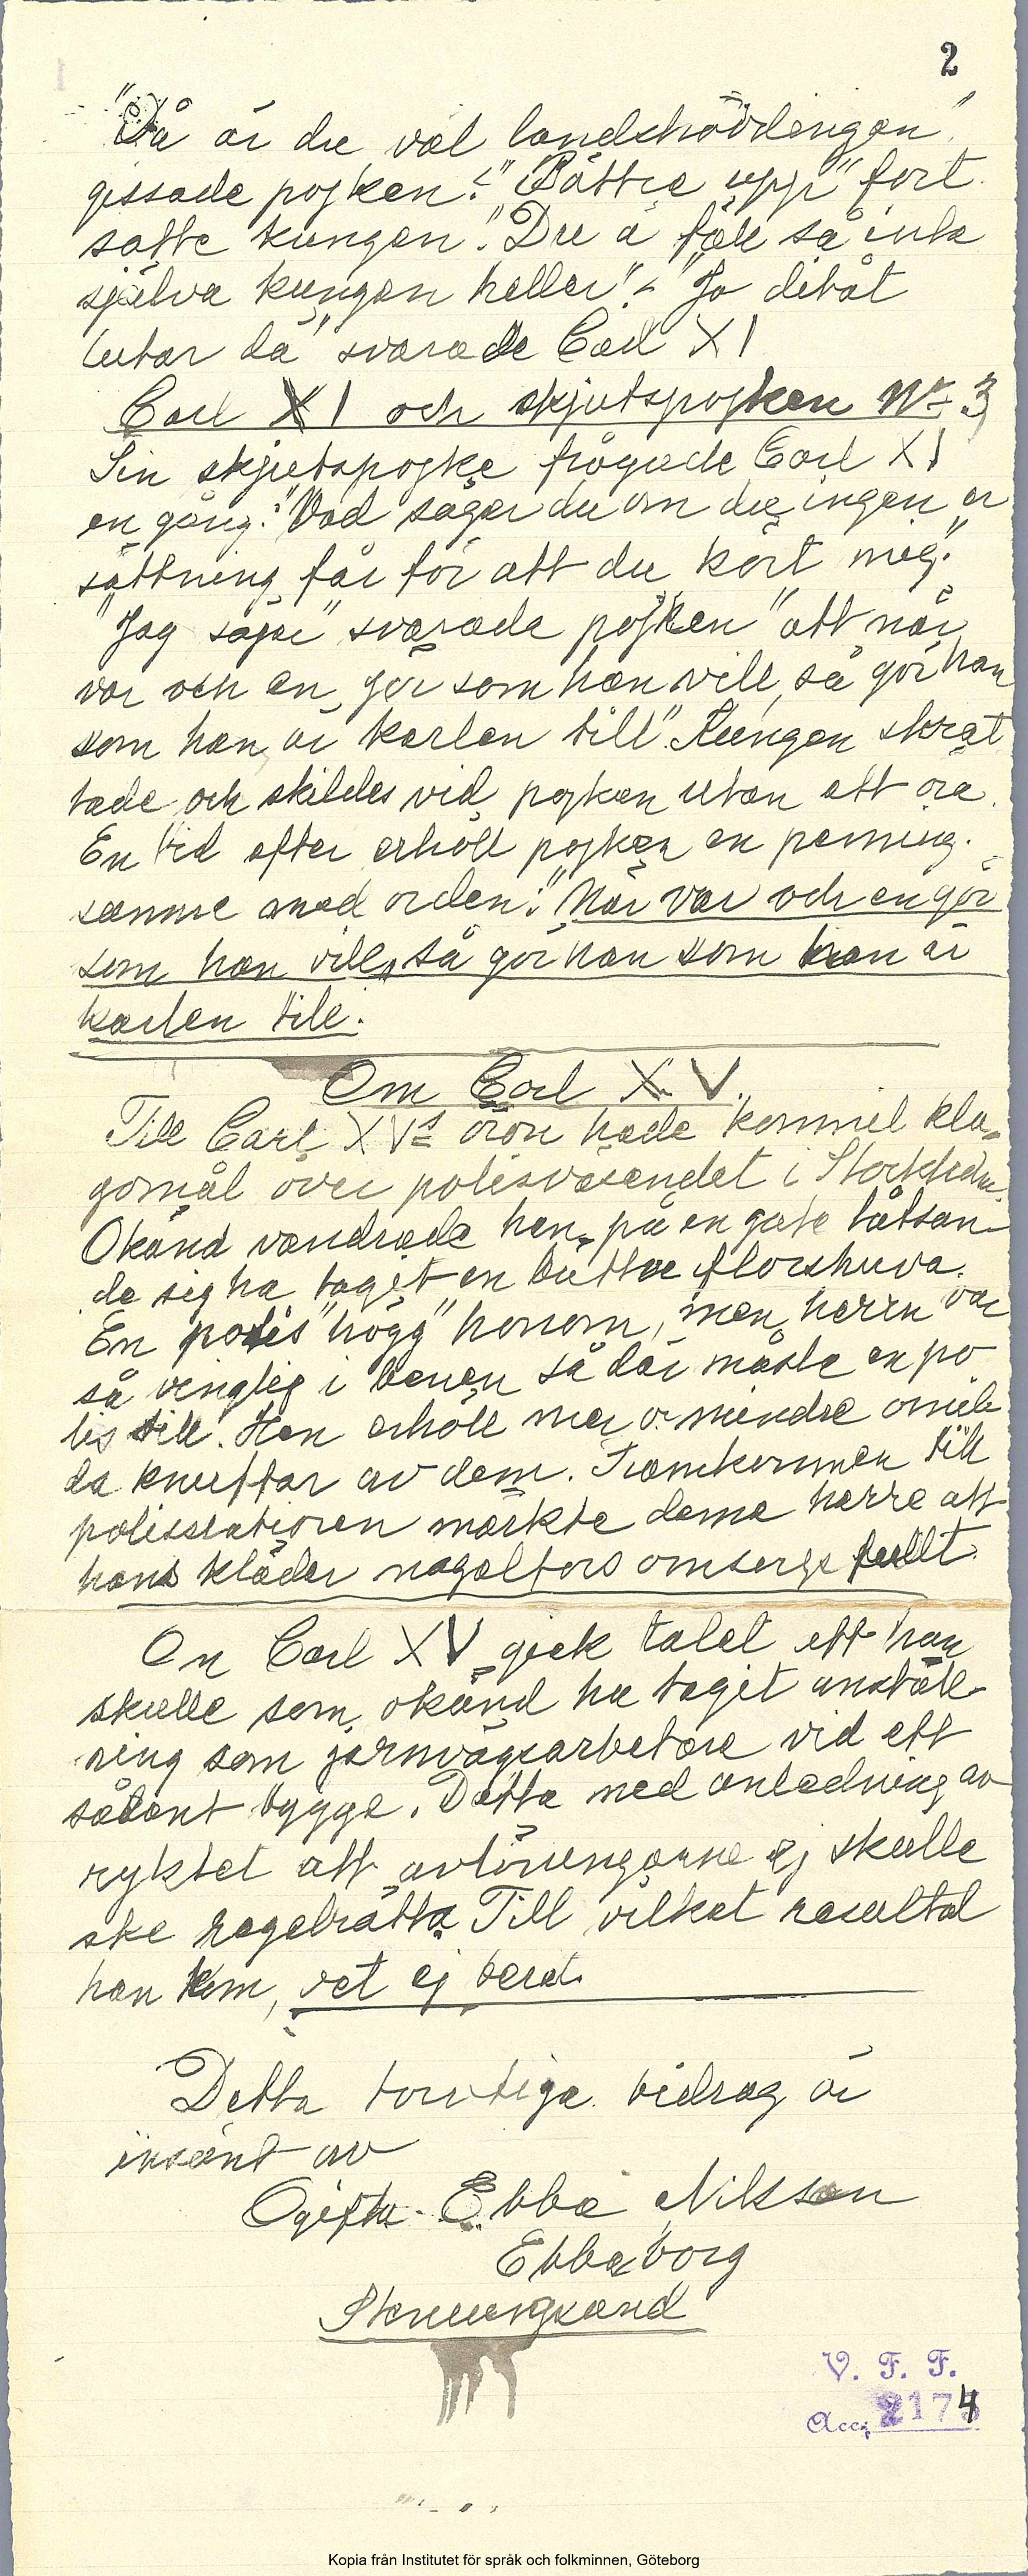 2
"Då är du väl landshövdingen",
gissade pojken. "Bättre upp" fort
satte kungen. "Du ä fäll så inte
själva kungen heller"! - "Jo ditåt
lutar då" svarade Carl XI
Carl XI och skjutspojken Nr 3
Sin skjutspojke frågade Carl XI
en gång: "Vad säger du om du ingen er
sättning får för att du kört mig."
"Jag säger" svarade pojken "att när
var och en gör som han vill, så gör han
som han är karlen till". Kungen skrat
tade och skildes vid pojken utan att
En tid efter erhöll pojken en penning.
summe med orden: "När var och en gör
som han vill, så gör han som han är
karlen till.
Om Carl XV.
Till Carl XVs öron hade kommit kla,
gomål över polisväsendet i Stockholm.
Okänd vandrade han på en gata låtsan
de sig ha tagit en bättre florshuva.
En polis "högg" honom, men herrn var
så vinglig i benen så där måste en po
lis till. Han erhöll mer o. mindre omil
da knuffar av dem. Framkommen till
polisstationen märkte denne herre att
hans kläder någelfors omsorgsfullt.
Om Carl XV gick talet att han
skulle som okänd ha tagit anställ
ning som järnvägsarbetare vid ett
sådant bygge. Detta med anledning av
ryktet att avlöningarne ej skulle
ske regelrätta. Till vilket resultat
han kom, vet ej berät.
Detta torftiga bidrag är
insänt av
Ogifta. Ebba Nilsson
Ebbaborg
Stenungsund
V. F. F.
Acc. 2174
Kopia från Institutet för språk och folkminnen, Göteborg